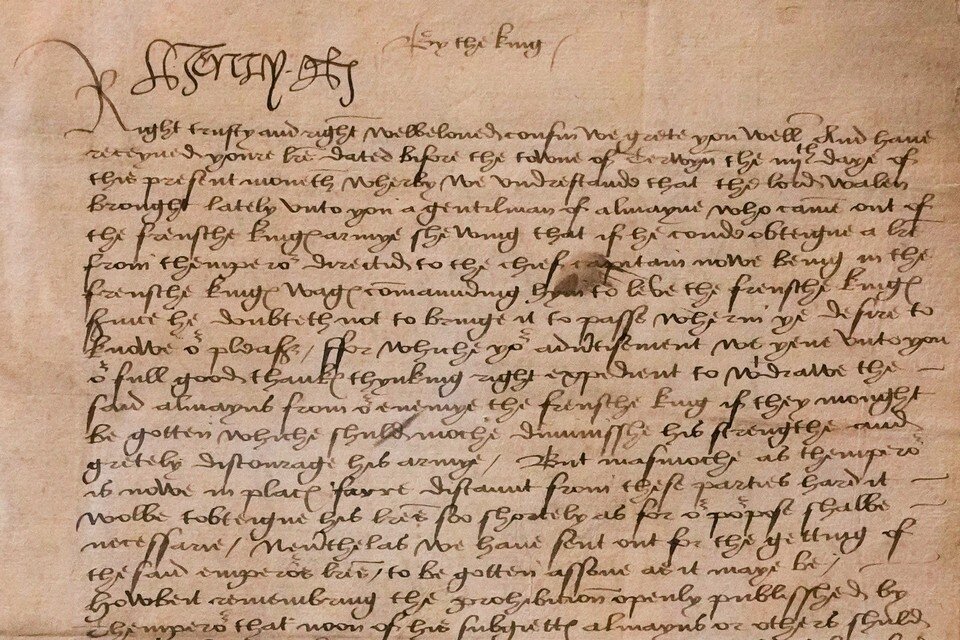 By the king
Henry R
Right trusty and right welbeloued cousin we grete you well And haue
receyued youre lrēs dated bifore the towne of Terwyn the iiijth daye of
this present moneth wherby we vndrestande that the lord walen
brought lately vnto you a gentilman of almayne who came out of
the frensche kinges armye shewing that if he coude obteigne a lrē
from themperoʳ directed to the chief capitain nowe being in the
frensche kinges wages cōmaunding hym to leve the frensche kinges
seruice he doubteth not to bringe it to passe wherin ye desire to
knowe oʳ pleasʳ / ffor whiche yoʳ aduertisement we yeue vnto you
oʳ full good thankes thynking right expedient to wᵗdrawe the
said almayns from oʳ enemye the frensche king if they mought
be gotten whiche shuld moche dimynisshe his strengthe and
gretely discourage his armye / But inasmoche as themperoʳ
is nowe in places farre distaunt from these parties hard it
wolbe tobteigne his lrēs soo shortely as for oʳ poʳpose shalbe
necessarie / Neuʳthelas we haue sent out for the getting of
the said emperoʳs lrēs / to be gotten assone as it maye be /
howbeit remembring the prohibition openly publisshed by
themperoʳ that noon of his subgiettes almayns or others shuld